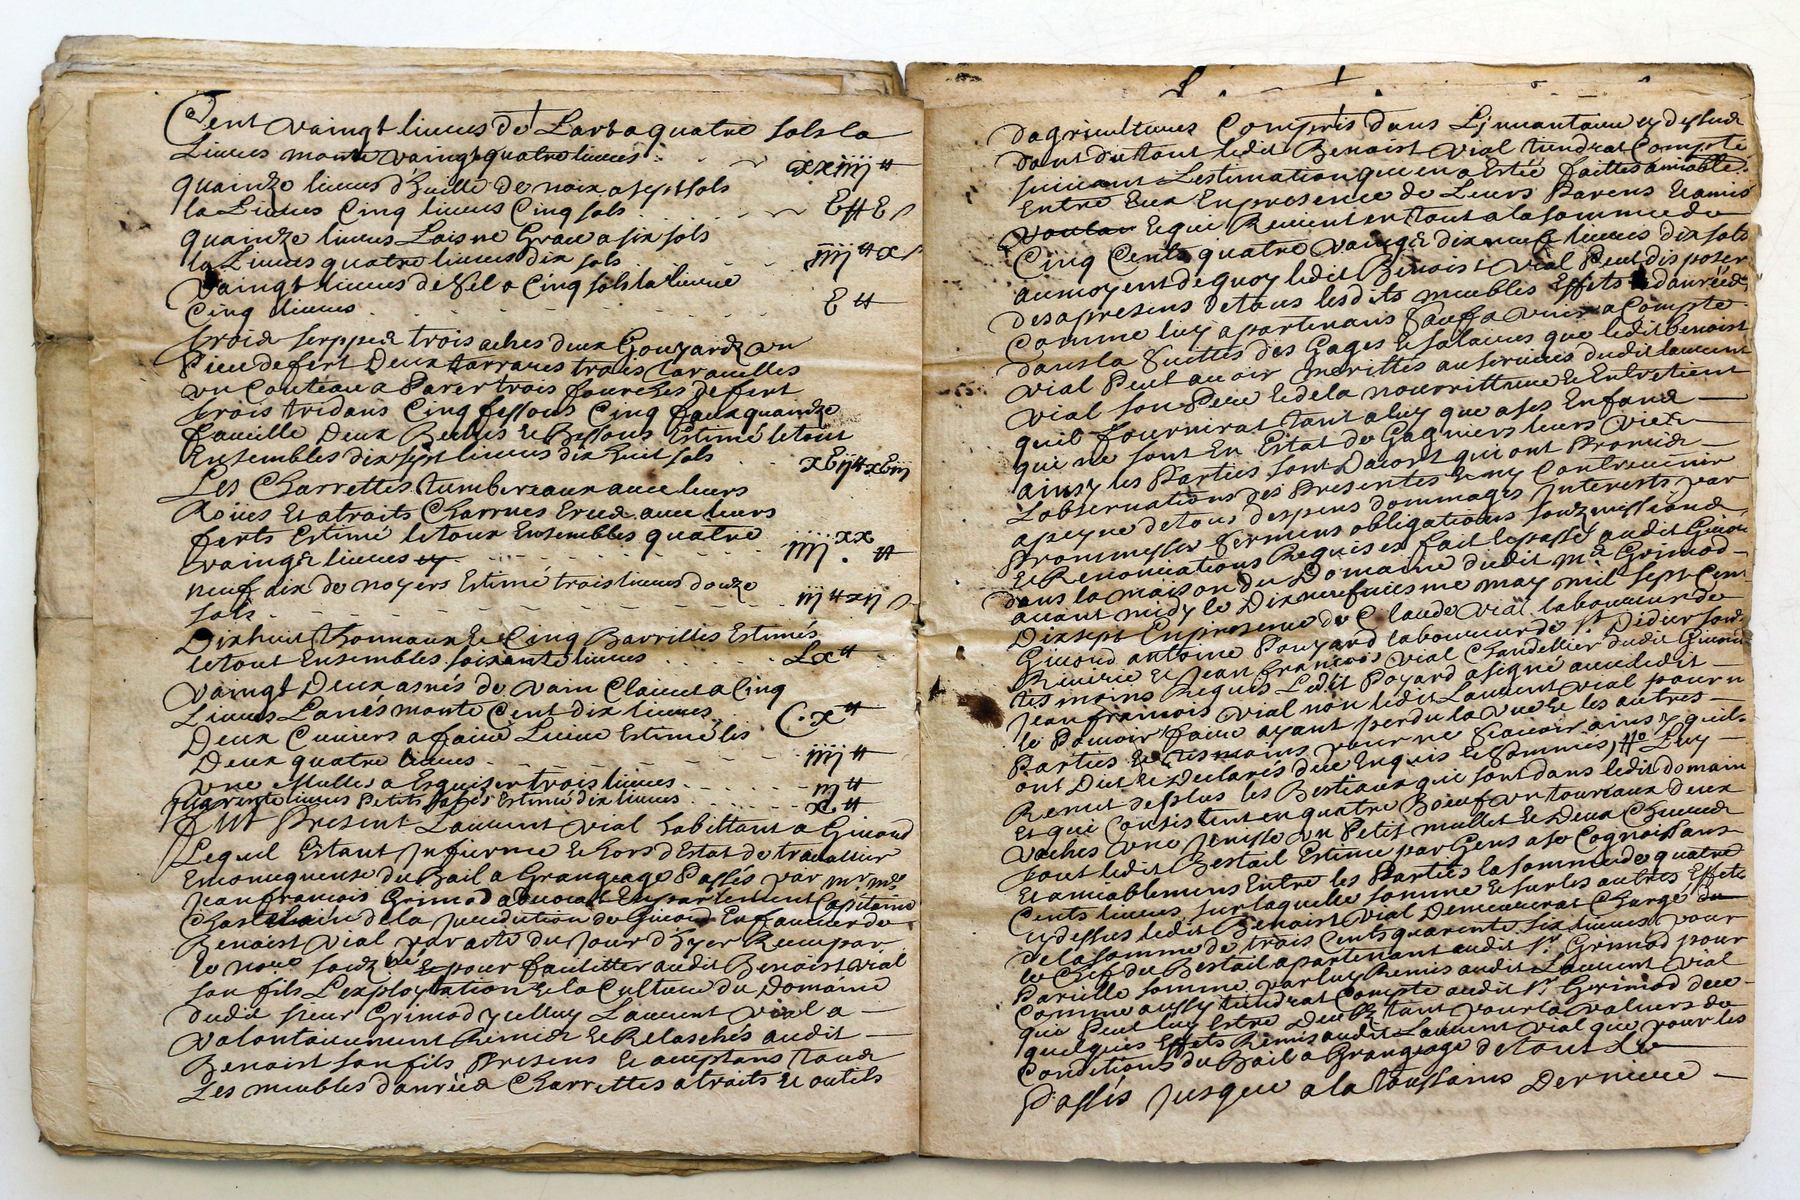 Cent vaingt liuures de Lart a quatre sols la
Liuures monte vaingt quatre liuures xxiiij ₶
quainze liuures d'huille de noix a sept sols
la Liuures Cinq liuures Cinq sols E ₶ E s
quainze liuures Loisne Grace a six sols
la Liuures quatre liuures dix sols iiij ₶ x s
Vaingt liuures de Sel a Cinq sols la liuure
Cinq liuures E ₶
trois serppes trois aches deux Gouyardz un
Pieu de fert Deux tarraires trois tarauelles
un Couteau a Parer trois fourches de fert
trois tridans Cinq fessous Cinq faux quainze
faucille Deux Beches et Bessous Estimé le tout
Ensembles dix sept liuures dix huit sols xEij ₶ xEiij
Les Charrettes tumbereaux auec leurs
Roües Et atraits Charrues Erud auec leurs
ferts Estimé le tout Ensembles quatre
vaingt liuures iiij xx ₶
neuf aix de noyers Estimé trois liuures douze
sols iij ₶ xij s
Dixhuit thonnaux Et Cinq Barrilles Estimés
le tout Ensembles soixante liuures Lx ₶
Vaingt Deux asnés de vain Clairet a Cinq
Liuures Lanés monte Cent dix liuures C.x ₶
Deux Cuuiers a faire Lissiue Estimé les
Deux quatre liuures iiij ₶
une Mulle a Esguizer trois liuures iij ₶
quarente liuures Petits Estimé dix liuures x ₶
Present Laurent Vial habittant a Giuord
Lequel Estant Infirme Et hors d'Estat de trauallier
En consequense du Bail a Grangeage Passés par Mr Me
Jean francois Grimod aduocat En parlement Capitaine
Chastelain de la Juridition de Giuord En faueur de
Benoist Vial par acte du Jour d'hyer Receu par
le nore souz ne Et pour facilitter audit Benoist Vial
son fils L'exploytation Et la Culture du Domaine
dudit sieur Grimod ycelluy Laurent Vial a
Valontairement Remis Et Relaschés audit
Benoist son fils Presens Et aceptans tous
Les meubles danrées Charrettes atraits Et outils
dagricultures Compris dans Linuantaire cy dessus
dont du tout ledit Benoist Vial tiendrat Compte
suiuant Lestimation qui en a Estée faittes amiable
Entre Eux En presence de Leurs Parens Et amis
Et qui Reuient en tout a la somme de
Cinq Cents quatre vaingt dix neuf liuures dix sols
au moyent de quoy ledit Benoist Vial Peut disposer
des a present de tous lesdits meubles Effets Et danrées
Comme luy apartenans sauf a venir a Compte
dans la suittes des Gages Et salaires que ledit benoist
Vial Peut auoir merittés au seruices dudit laurent
Vial son Pere Et de la nourritture Et Entretient
quil fournirat tant a luy que a ses Enfans
qui ne sont En Estat de Gagniers leurs Vies
ainsy les Parties sont Dacort qui ont Promis
Lobseruations des Presentes Et ny Contreuenir
a peyne de tous despens dommages Interests par
Prommesses sermens obligations souzmissions
Et Renonciations Requises fait Et passé audit Giuord
dans la maison du Domaine dudit Mr Grimod
auant midy le Dix neufuiesme may mil sept Cent
Dixsept En presence de Claude Vial laboureur de
Giuord antoine Poyard laboureur de St Didier sous
Riuirie Et Jean francois Vial Chandellier dudit Giuord
tesmoins Requis Ledit Poyard a signé auec ledit
Jean francois Vial non ledit Laurent Vial pour n
le Pouuoir faire ayant perdu la vue Et les autres
Parties Et tesmoins pour ne scauoir ainsy quils
ont Dict Et Declarés de ce Enquis Et sommés
Remet de plus les Bestiaux qui sont dans ledit domain
Et qui Consistent en quatre Boeuf un toureaux deux
vaches une Jenisse un Petit mullet Et Deux Cheuaux
tout ledit Bestail Estimé par Gens a se Cognoissans
Et amiablemens Entre les Parties la somme de quatre
Cents liuures sur laquelle somme Et sur les autres Effets
cy dessus ledit Benoist Vial Demeurerat Chargé
de la somme de trois Cents quarente six liuures pour
le Chef du Bestail apartenant audit sr Grimod pour
Parielle somme par luy Remis audit Laurent Vial
Comme aussy tiendrat Compte audit sr Grimod de ce
qui Peut luy Estre Deub tant pour la valeurs de
quelques Effets Remis audit Laurent Vial que pour les
Conditions du Bail a Grangeage de tout Le
Passés Jusque a la toussains Derniere